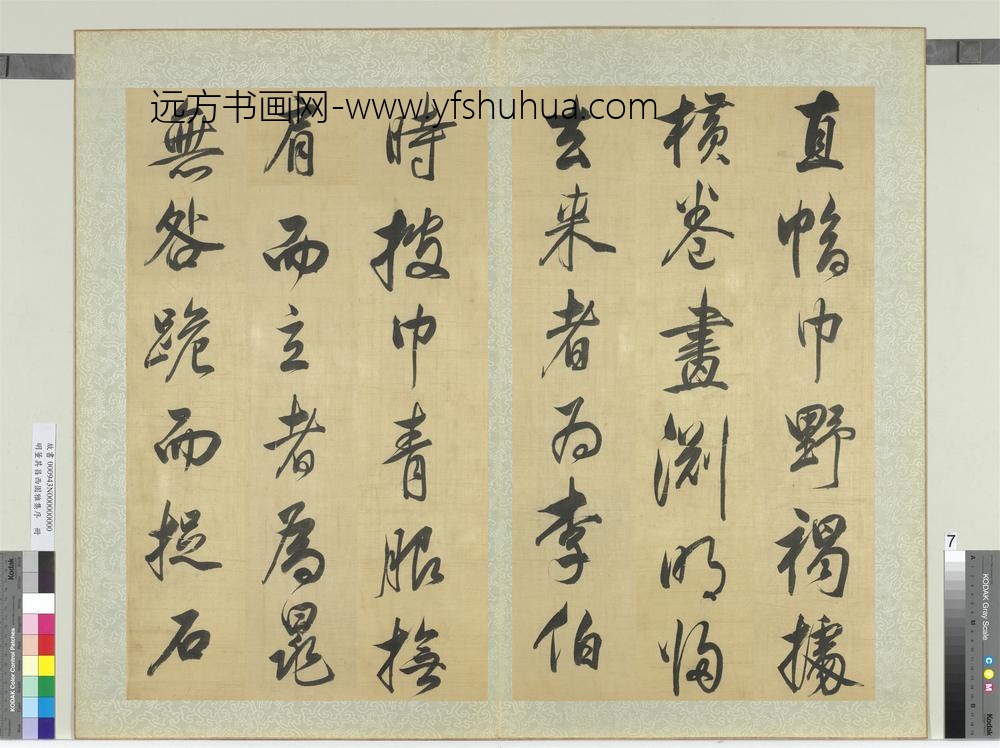 远方书画网-www.yfshuhua.com
直幅巾野褐據
橫卷畫淵明歸
去来者为李伯
時披巾青服撫
肩而立者為晁
無咎跪而捉石
故書 000943N000000000
明董其昌西園雅集序 冊
7
KODAK Gray Scale
Kodak
C
Y
M
Kodak
KODAK Color Control Patches